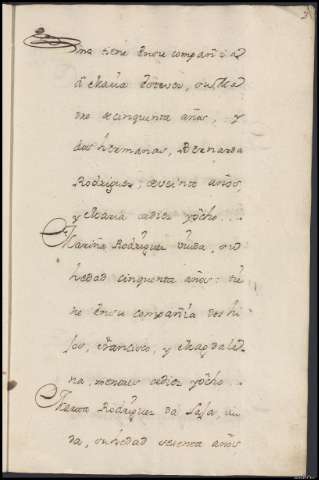 na tiene en su compañia
a Maria Esteves, su Ma
dre de cinquenta años, y
dos hermanas, Bernarda
Rodriguez, de veinte años,
y Maria de diez y ocho...
Mariña Rodriguez viuda, su
hedad cinquenta años: tie
ne en su compañia dos hi
jos, Francisco, y Magdale
na, menores de diez y ocho...
Rodriguez da viu
da, su hedad setenta años